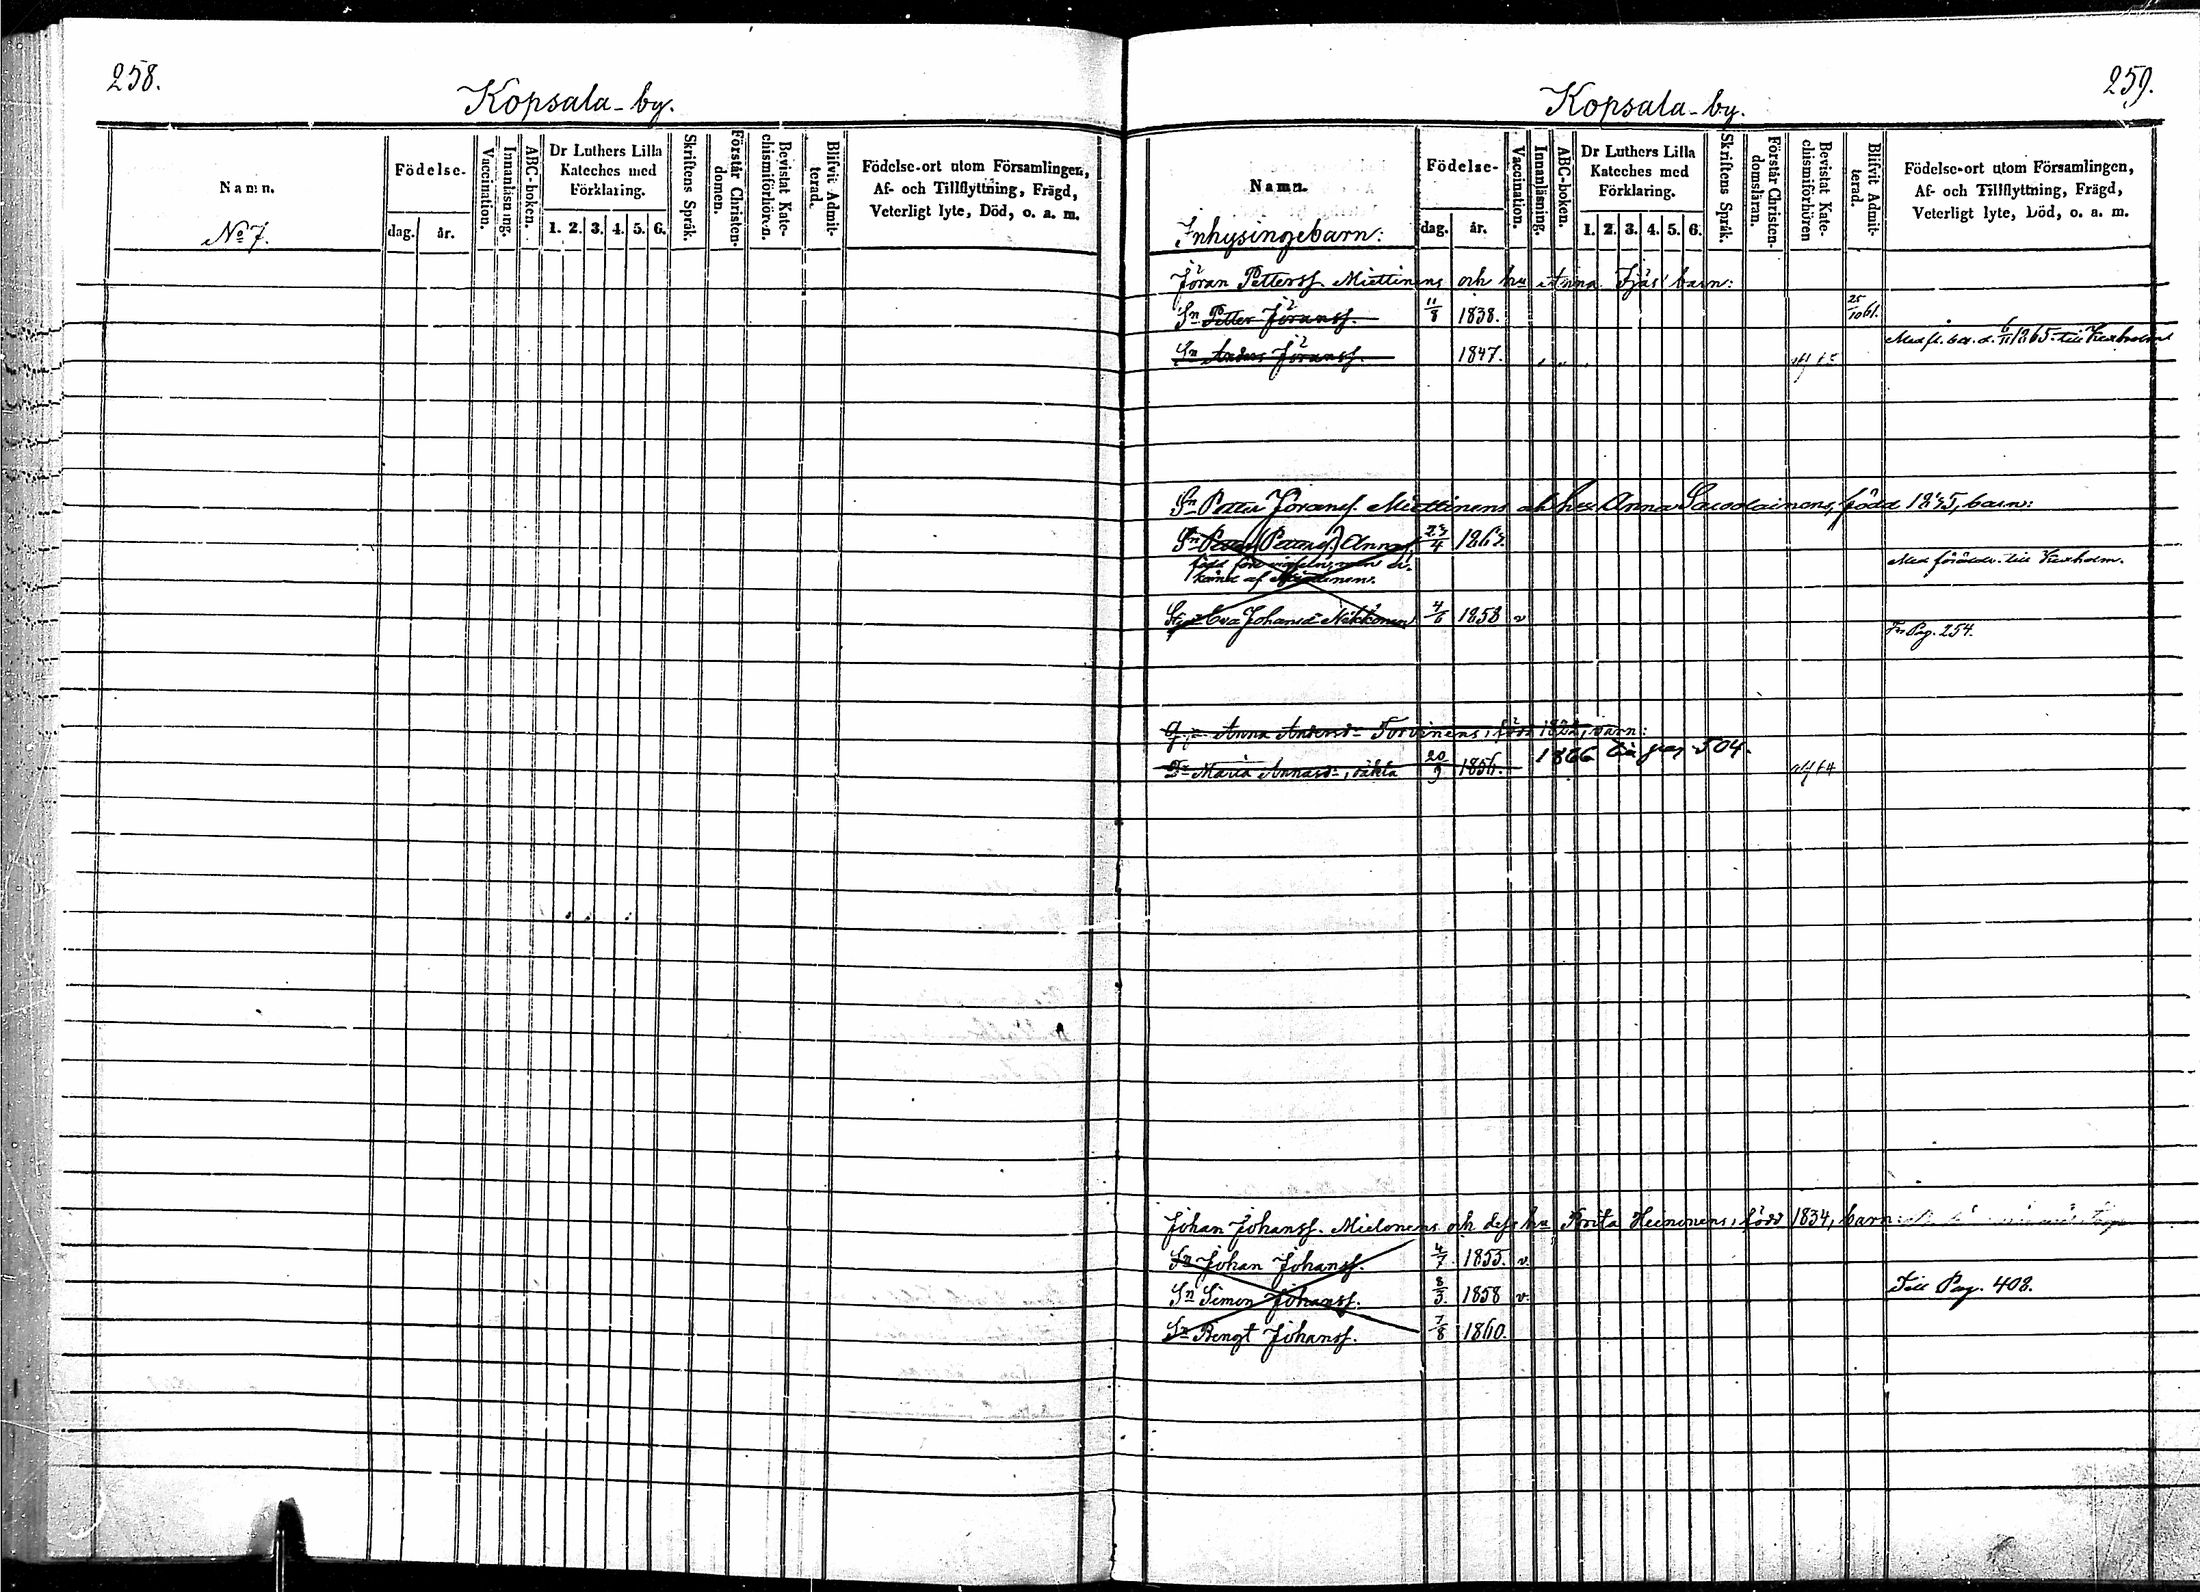 258.
Kopsala-by.
Namn.
No 7.
Födelse-
dag. år.
Vaccination.
Innanläsning.
ABC-boken.
Dr Luthers Lilla
Kateches med
Förklaring.
1. 2. 3. 4. 5. 6.
Skriftens Språk.
Förstår Christen-
domen.
Bevistat Kate-
chismiförhören.
Blifvit Admit-
terad.
Födelse-ort utom Församlingen,
Af- och Tillflyttning, Frägd,
Veterligt lyte, Död, o. a. m.
259.
Kopsala-by.
Namn.
Inhysingebarn:
Födelse-
dag. år.
Vaccination.
Innanläsning.
ABC-boken.
Dr Luthers Lilla
Kateches med
Förklaring.
1. 2. 3. 4. 5. 6.
Skriftens Språk.
Förstår Christen-
domsläran.
Bevistat Kate-
chismiförhören
Blifvit Admit-
terad.
Födelse-ort utom Församlingen,
Af- och Tillflyttning, Frägd,
Veterligt lyte, Död, o. a. m.
Jöran Petterss. Miettinens och hu Anna barn:
Sn Petter Jöranss. 11/8 1838. 25/10 61.
Med fl. bet. d. 6/11 1865 till Kexholm
Sn Anders Jöranss. 1847.
Sn Petter Jöranss. Miettinens och hex Anna född barn:
Sn Petter (Petterss.) Annass.
Med föräldr. till Kexholm.
Eva Johansdr 4/6 1858 v
Fr. Pag. 254.
Anna Andersdr Torvinens, född 1822, barn:
1866 Till pag 504.
Dr Maria Annasdr, oäkta 20/9 1856.
Johan Johanss. Mielonens och dess hu Brita Heinonens, född 1834, barn:
Sn Johan Johanss. 4/7 1855. v.
Sn Simon Johanss. 8/3. 1858 v.
Till Pag. 408.
Sn Bengt Johanss. 7/8 1860.